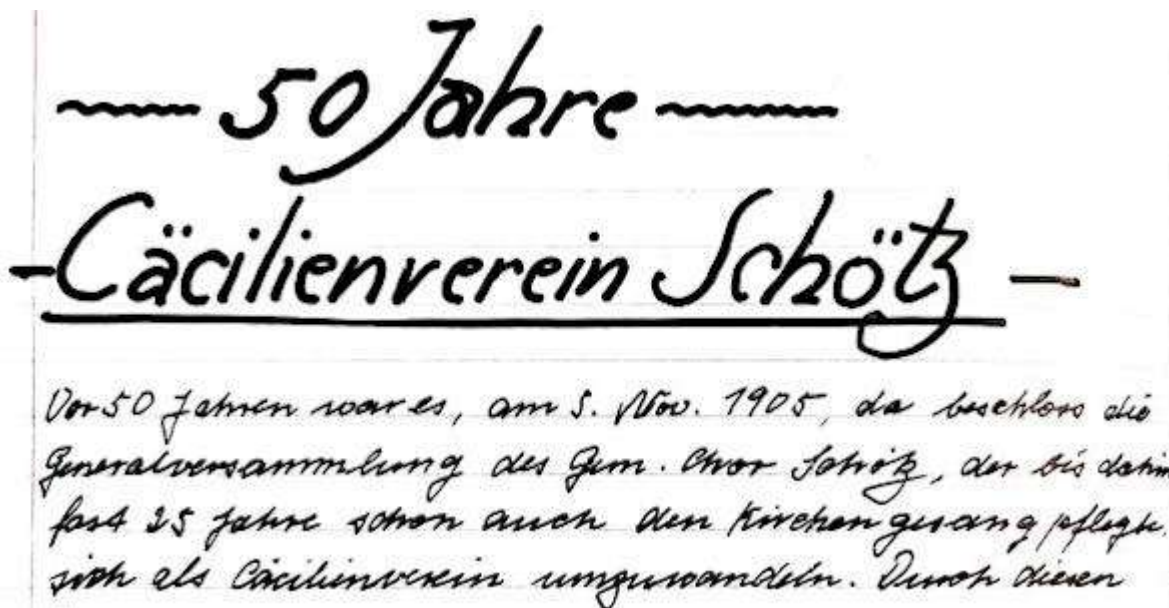 50 Jahre
Cäcilienverein Schötz
Vor 50 Jahren war es, am 5. Nov. 1905, da beschloss die
Generalversammlung des Gem. Chor Schötz, der bis dahin
fast 25 Jahre schon auch den Kirchengesang pflegte,
sich als Cäcilienverein umzuwandeln. Durch diesen